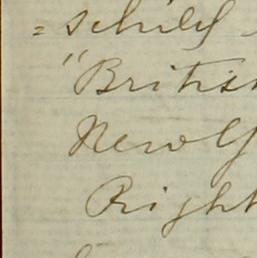 = schild
"British
New Y
Right